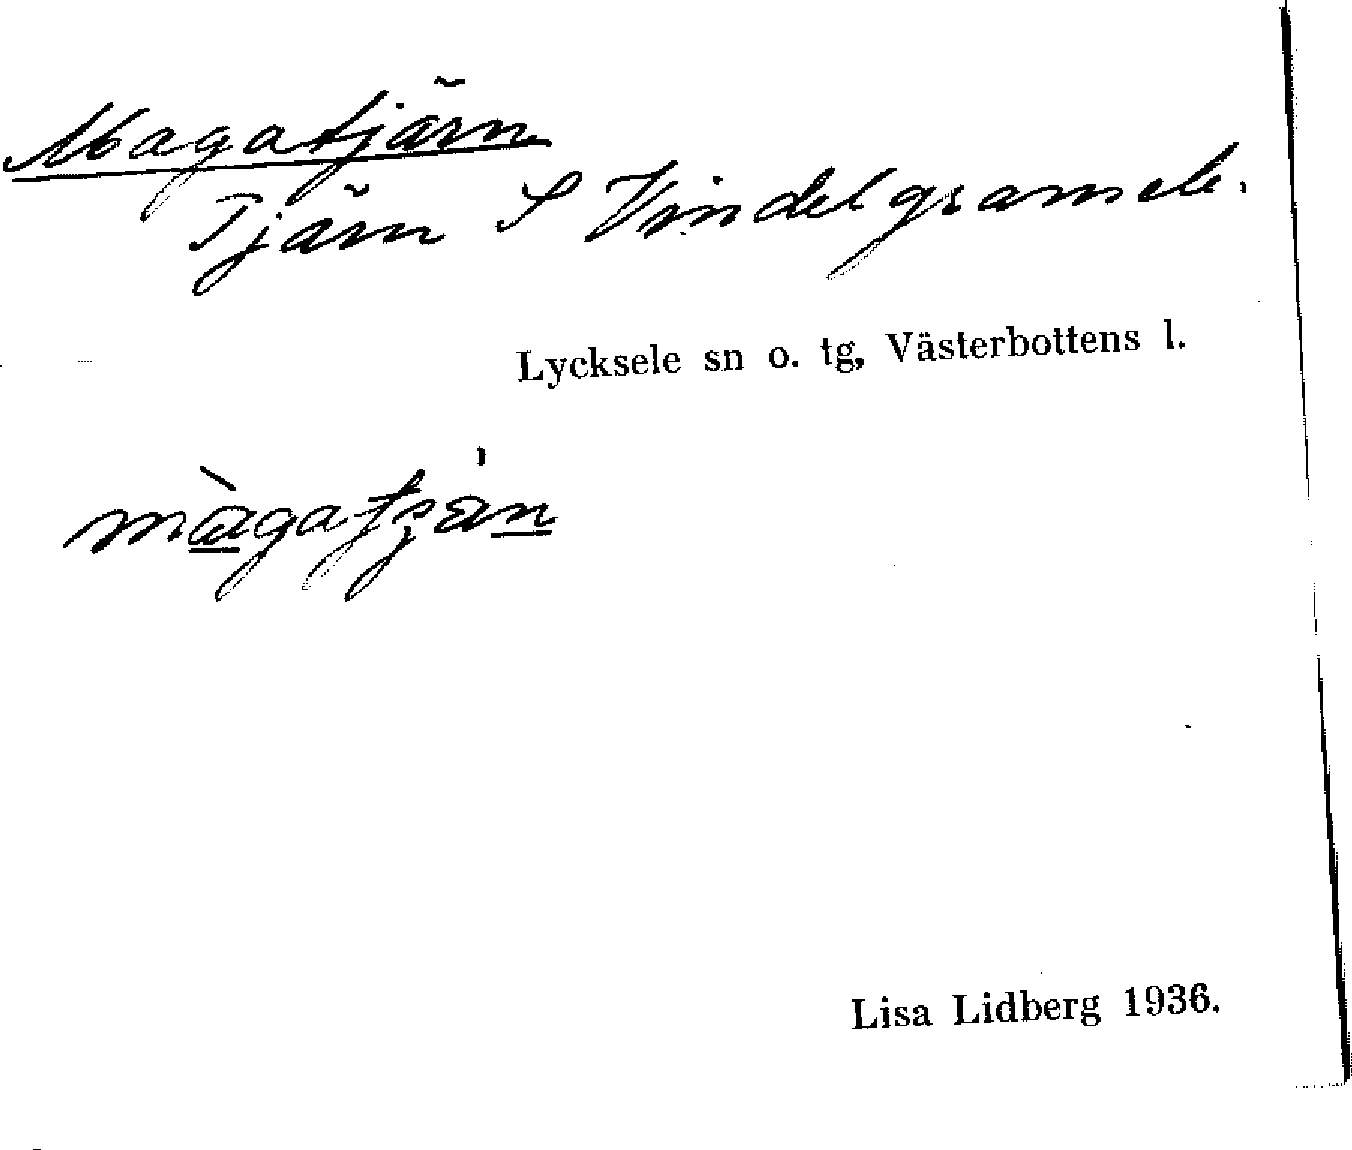 Magatjärn
Tjärn S Vindelgransele.
Lycksele sn o. tg, Västerbottens l.
màgatjän
Lisa Lidberg 1936.